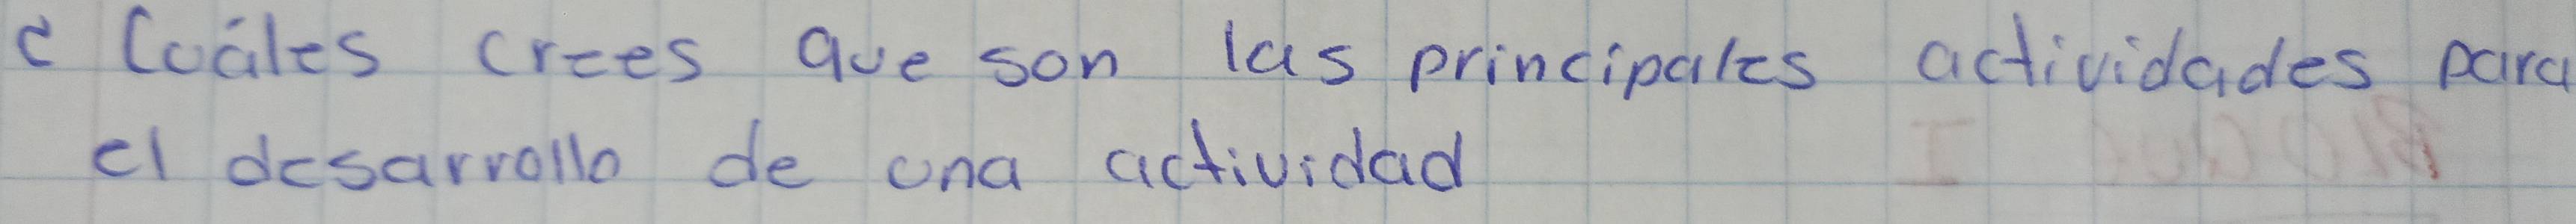 ¿Cuáles crees que son las principales actividades para
el desarrollo de una actividad